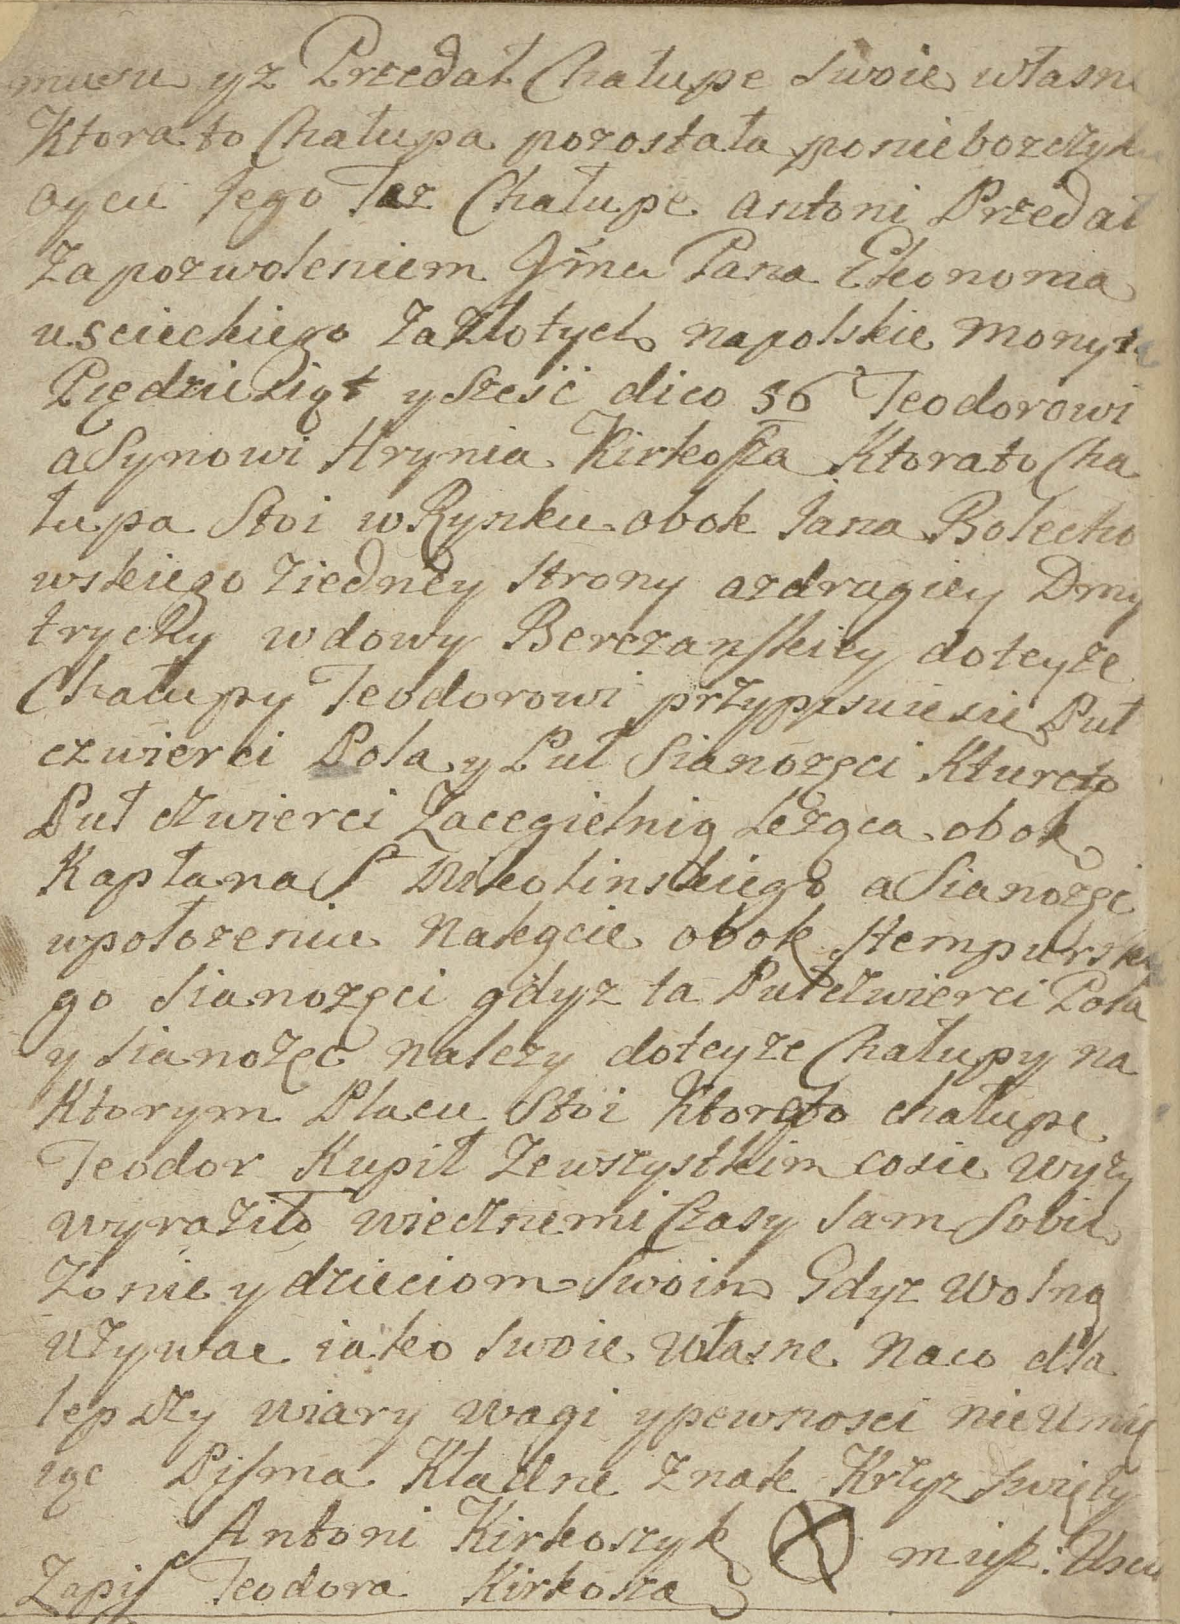 muru yz Przedał Chałupe Swoie własn
Ktora to Chałupa pozostała ponieboszczyku
oycu Jego Taz Chałupe Antoni Przedał
Zapozwoleniem Jmci Pana Ekonoma
uscieckiego zaZłotych napolskie Monyte
Piędziesiąt y Sześć dico 56 Teodorowi
aSynowi Hrynia Kirkosza Ktorato Cha
łupa Stoi wRynku obok Jana Bolecho
wskiego ziedney Strony azdrugiey Dmy
trycky wdowy Berezanskiey doteyze
Chałupy Teodorowi przypisuiesie Puł
czwierci Pola y Puł Sianozęci Kture to
Puł czwierci Zacegielnią Leżąca obok
Kapłana S Mikolinskiego aSianozęc
wpołozeniu Nałęcie obok Hempurskie
go Sianozęci gdyz ta Pułczwierci Pola
y Sianożęc nalezy doteyze Chałupy na
Ktorym Placu Stoi Ktoręto chałupe
Teodor Kupił Zewszystkim cosie wyzy
wyraziło wiecznemi Czasy Sam Sobie
Zonie y dzieciom Swoim Gdyz wolną
uzywac iako swoie własne Naco dla
lepszy wiary wagi ypewnosci nieumię
iąc Pisma Kładne znak Krzyz Swięty
Antoni Kirkoszyk miesz: Usci
Zapis Teodora Kirkosza